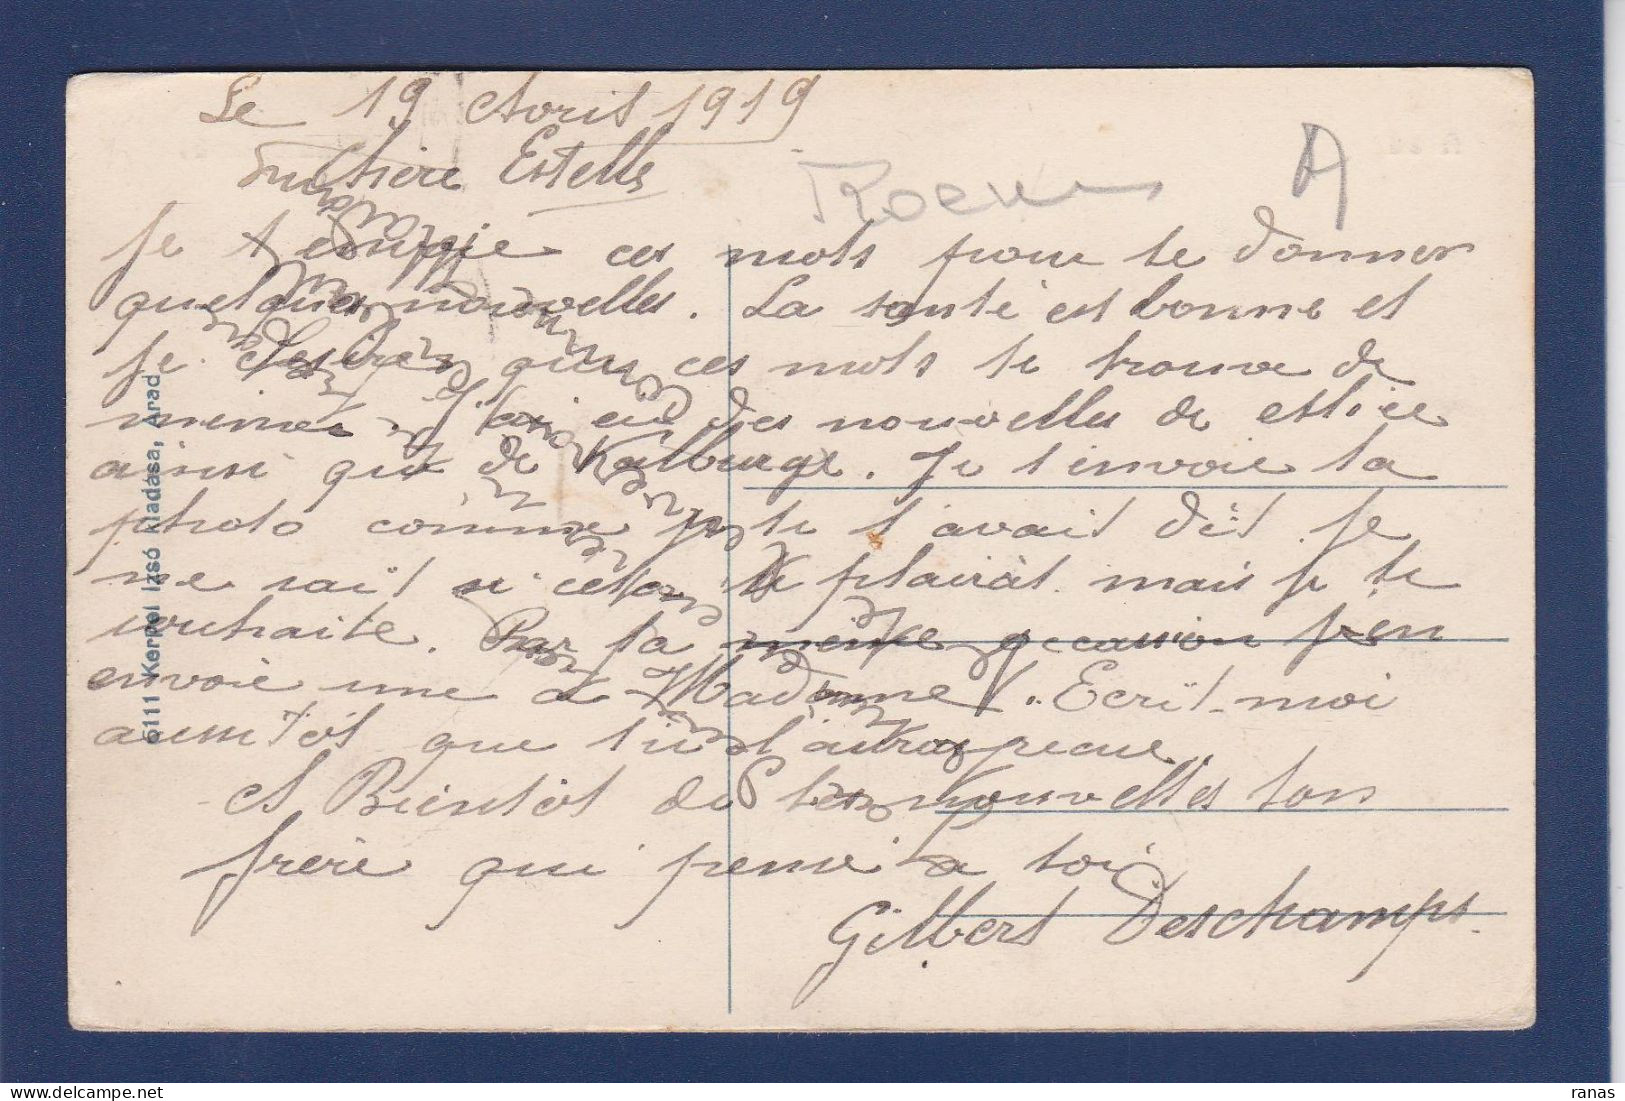 Le 19 Avril 1919
Chère Estelle
Je t'envoie ces mots pour te donner
quelques nouvelles. La santé est bonne et
je désire que ces mots te trouve de
même. J'ai eu des nouvelles de
ainsi que de Kalburge. Je t'envoie ta
photo comme je te l'avait dit. Je
ne sait si cela te plairàt mais je te
souhaite. Par la même occassion j'en
envoie une à Madame. Ecrit-moi
aussitôt que tu l'auras recue.
et Bientôt de tes nouvelles ton
frère qui pense à toi
Gilbert Deschamps.
A
6111 Kerpel Izsó kiadása, Arad
ranas